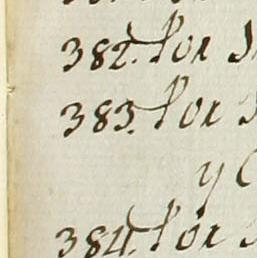 382. Por
383. Por
y
384. Por